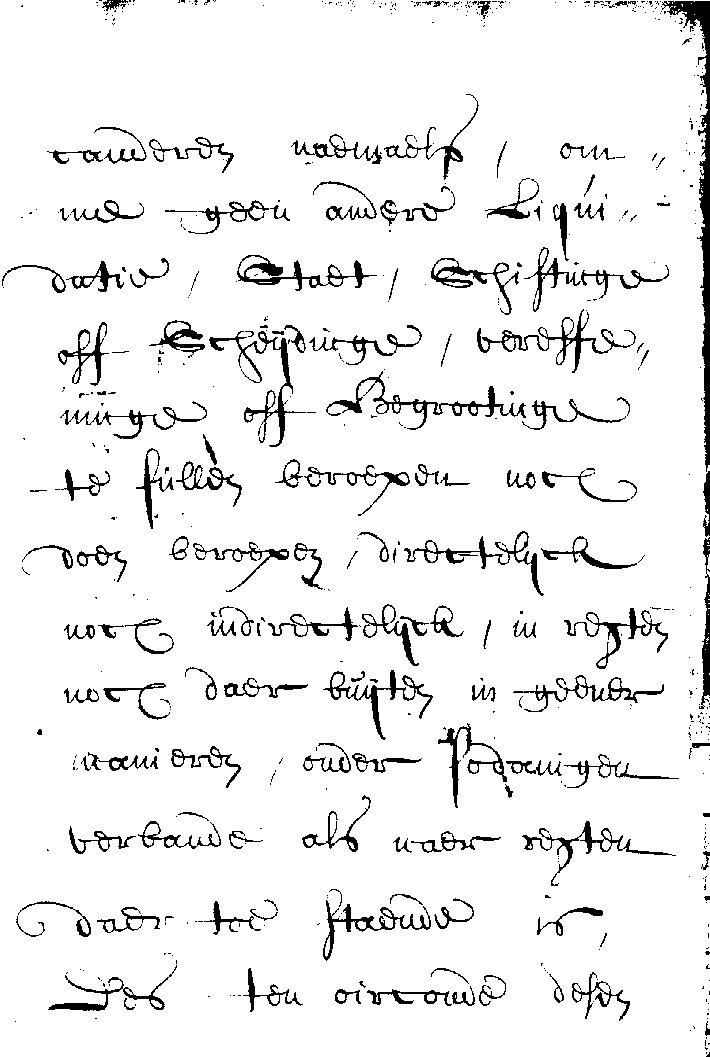 t'anderen naemaels, om„
me geen andere Liqui„
datie, Staet, Schiftinge
off Scheÿdinge, bereffe„
ninge off Begrootinge
te sullen beroepen noch
doen beroepen, directelyck
noch indirectelyck, in rechten
noch daer buÿten in geener
manieren, onder sodanigen
verbande als naer rechten
daer toe staende is,
Des ten oirconde desen